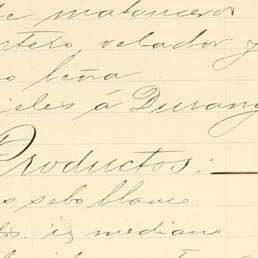 de matanceros
rtero, velador y
leña
ieles á Durang
Productos:
sebo blanco
id mediano